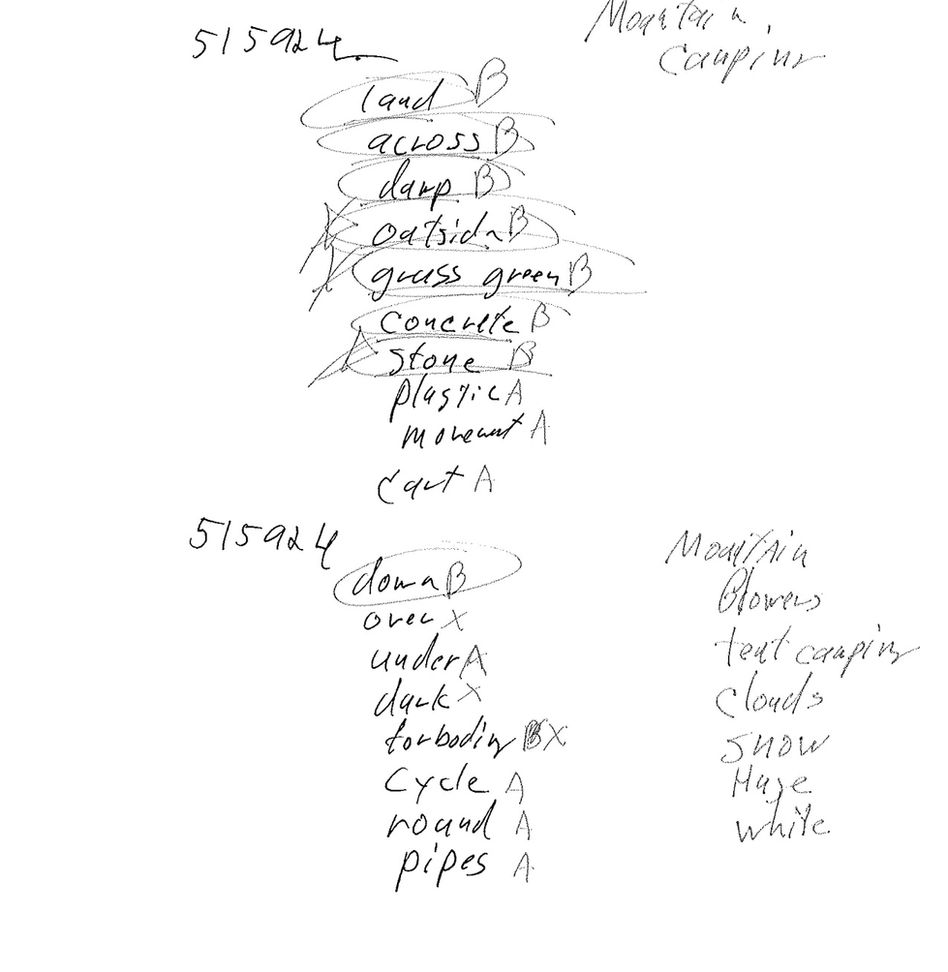 Mountain,
camping
515924
land B
across B
damp B
outside B
grass green B
concrete B
stone B
plastic A
movement A
cart A
515924
down B
over X
under A
dark X
forboding B X
cycle A
round A
pipes A
Mountain
flowers
tent camping
clouds
snow
Huge
white